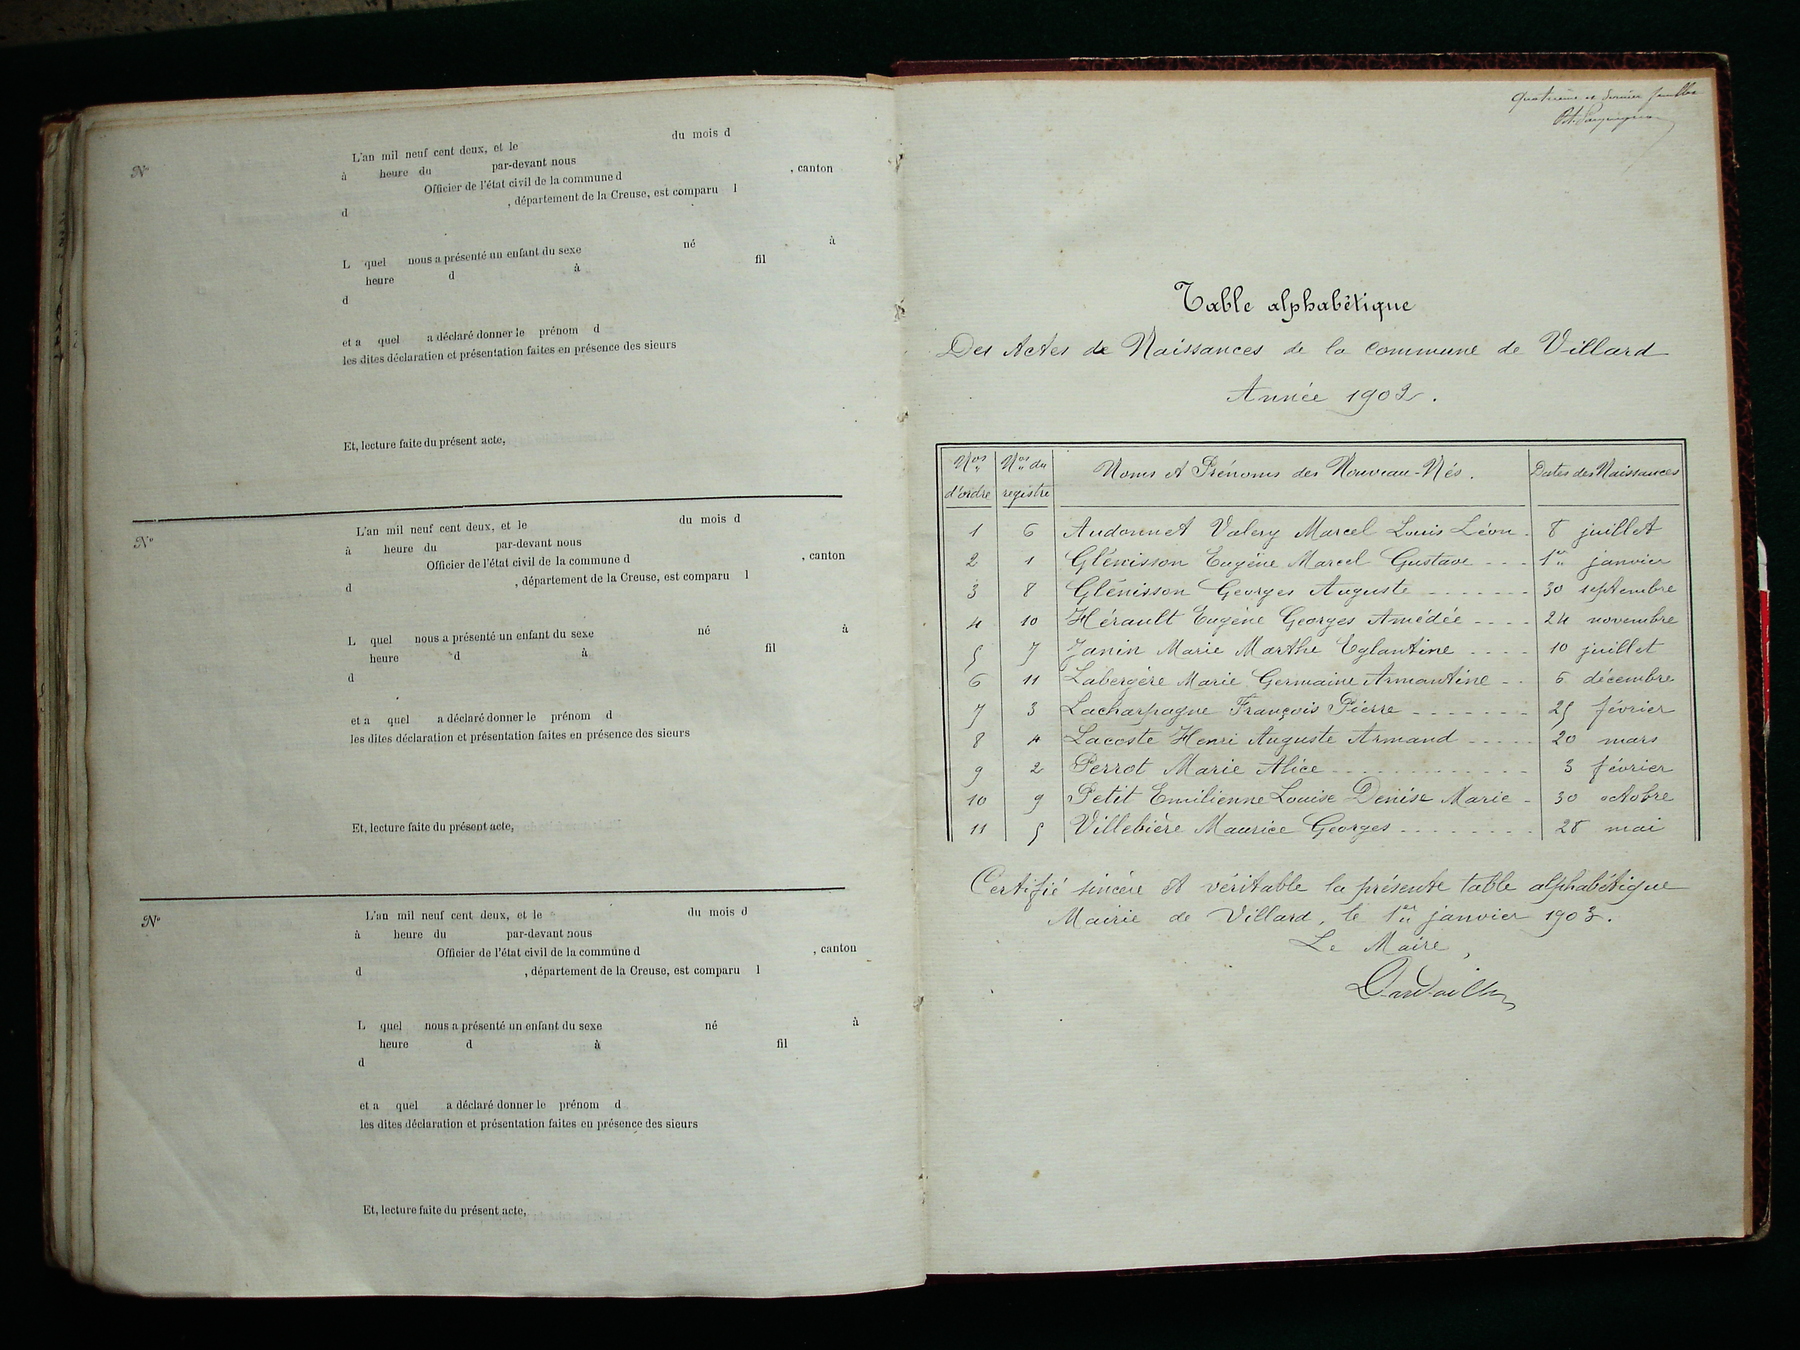 N°
du mois d
L'an mil neuf cent deux, et le
à heure du par-devant nous
Officier de l'état civil de la commune d , canton
d , département de la Creuse, est comparu l
L quel nous a présenté un enfant du sexe né à
heure d à fil
d
et a quel a déclaré donner le prénom d
les dites déclaration et présentation faites en présence des sieurs
Et, lecture faite du présent acte,
N°
L'an mil neuf cent deux, et le du mois d
à heure du par-devant nous
Officier de l'état civil de la commune d , canton
d , département de la Creuse, est comparu l
L quel nous a présenté un enfant du sexe né à
heure d à fil
d
et a quel a déclaré donner le prénom d
les dites déclaration et présentation faites en présence des sieurs
Et, lecture faite du présent acte,
N°
L'an mil neuf cent deux, et le du mois d
à heure du par-devant nous
Officier de l'état civil de la commune d , canton
d , département de la Creuse, est comparu l
L quel nous a présenté un enfant du sexe né à
heure d à fil
d
et a quel a déclaré donner le prénom d
les dites déclaration et présentation faites en présence des sieurs
Et, lecture faite du présent acte,
Quatrième et dernier feuillet
Table alphabétique
Des Actes de Naissances de la commune de Villard
Année 1902.
Nos d'ordre Nos du registre Noms et Prénoms des Nouveau-Nés. Dates des Naissances
1 6 Audonnet Valery Marcel Louis Léon 8 juillet
2 1 Glénisson Eugène Marcel Gustave 1er janvier
3 8 Glénisson Georges Auguste 30 septembre
4 10 Hérault Eugène Georges Amédée 24 novembre
5 7 Janin Marie Marthe Eglantine 10 juillet
6 11 Labergère Marie Germaine Armantine 6 décembre
7 3 Lacharpagne François Pierre 25 février
8 4 Lacoste Henri Auguste Armand 20 mars
9 2 Perrot Marie Alice 3 février
10 9 Petit Emilienne Louise Denise Marie 30 octobre
11 5 Villebière Maurice Georges 28 mai
Certifié sincère et véritable la présente table alphabétique
Mairie de Villard, le 1er janvier 1903.
Le Maire,